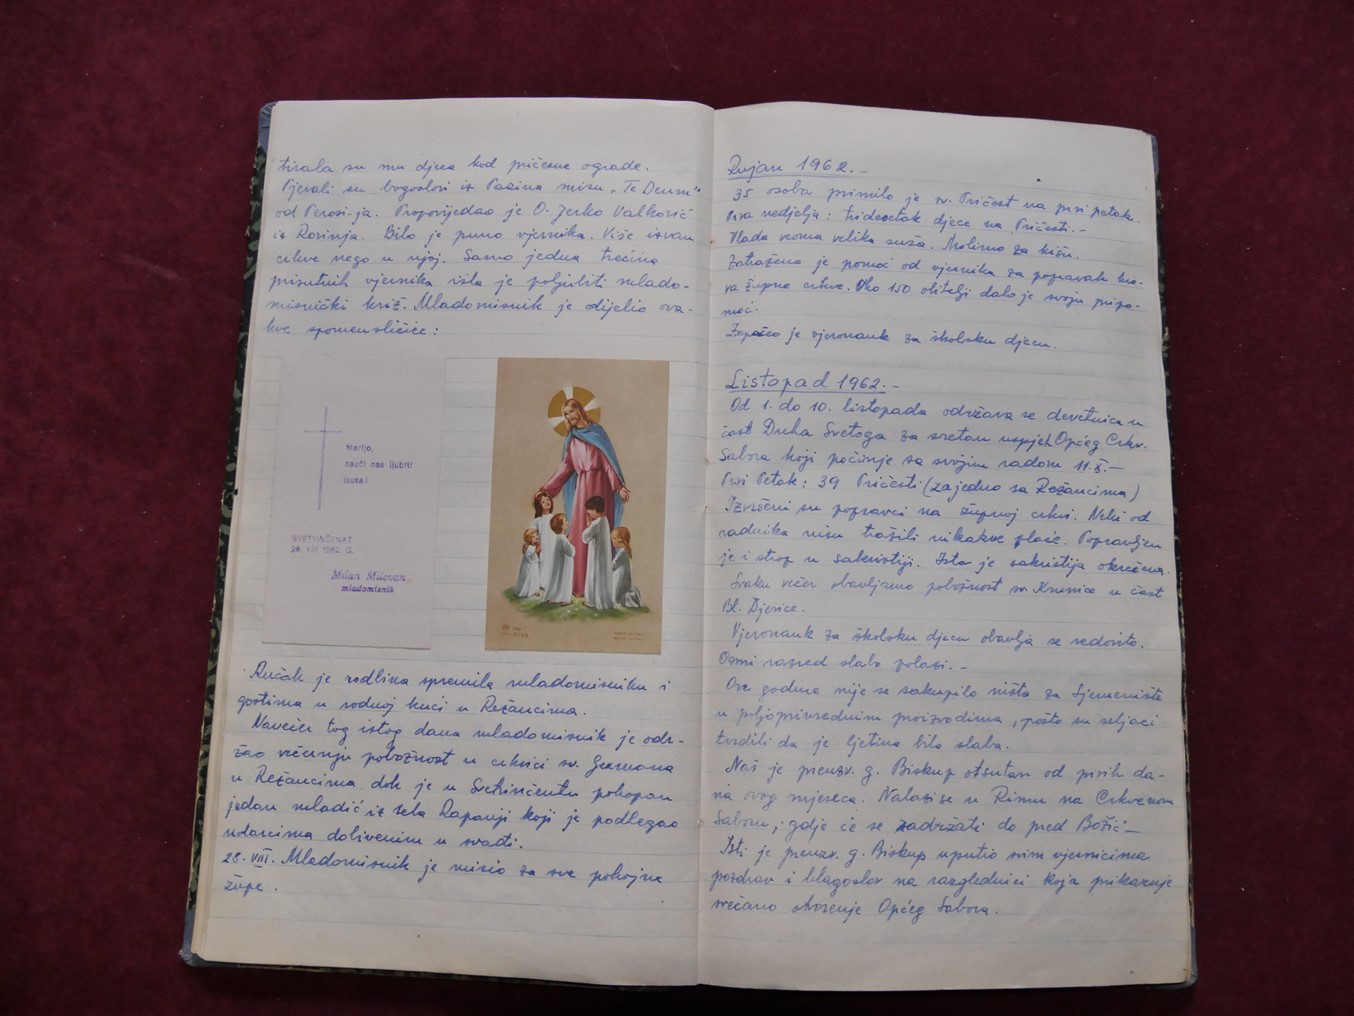 tirala su mu djeca kod pričesne ograde.
Pjevali su bogoslovi iz Pazina misu „Te Deum"
od Perosi-ja. Propovijedao je O. Jerko Valković
iz Rovinja. Bilo je puno vjernika. Više izvan
crkve nego u njoj. Samo jedna trećina
prisutnih vjernika išla je poljubiti mlado-
misnički križ. Mladomisnik je dijelio ova-
kve spomensličice:
Marijo,
nauči nas ljubiti
Isusa!
SVETVINČENAT
26. VIII 1962. G.
Milan Milovan
mladomisnik
Ručak je rodbina spremila mladomisniku i
gostima u rodnoj kući u Režancima.
Naveče tog istog dana mladomisnik je odr-
žao večernju pobožnost u crkvici sv. Germana
u Režancima dok je u Svetvinčentu pokopan
jedan mladić iz sela Rapanji koji je podlegao
udarcima dobivenim u svađi.
28. VIII. Mladomisnik je misio za sve pokojne
župe.
Rujan 1962.-
35 osoba primilo je sv. Pričest na prvi petak.
Prva nedjelja: tridesetak djece na Pričesti.-
Vlada veoma velika suša. Molimo za kišu.
Zatražena je pomoć od vjernika za popravak kro-
va župne crkve. Oko 150 obitelji dalo je svoju pripo-
moć.
Započeo je vjeronauk za školsku djecu.
Listopad 1962.-
Od 1. do 10. listopada održava se devetnica u
čast Duha Svetoga za sretan uspjeh Općeg Crkv.
Sabora koji počinje sa svojim radom 11. X.-
Prvi Petak: 39 Pričesti (zajedno sa Režancima)
Izvršeni su popravci na župnoj crkvi. Neki od
radnika nisu tražili nikakve plaće. Popravljen
je i strop u sakristiji. Ista je sakristija okrečena.
Svaku večer obavljamo pobožnost sv. Krunice u čast
Bl. Djevice.
Vjeronauk za školsku djecu obavlja se redovito.
Osmi razred slabo polazi.-
Ove godine nije se sakupilo ništa za Sjemenište
u poljoprivrednim proizvodima, pošto su seljaci
tvrdili da je ljetina bila slaba.
Naš je preuzv. g. Biskup otsutan od prvih da-
na ovog mjeseca. Nalazi se u Rimu na Crkvenom
Saboru, gdje će se zadržati do pred Božić-
Isti je preuzv. g. Biskup uputio svim vjernicima
pozdrav i blagoslov na razglednici koja prikazuje
svečano otvorenje Općeg Sabora.